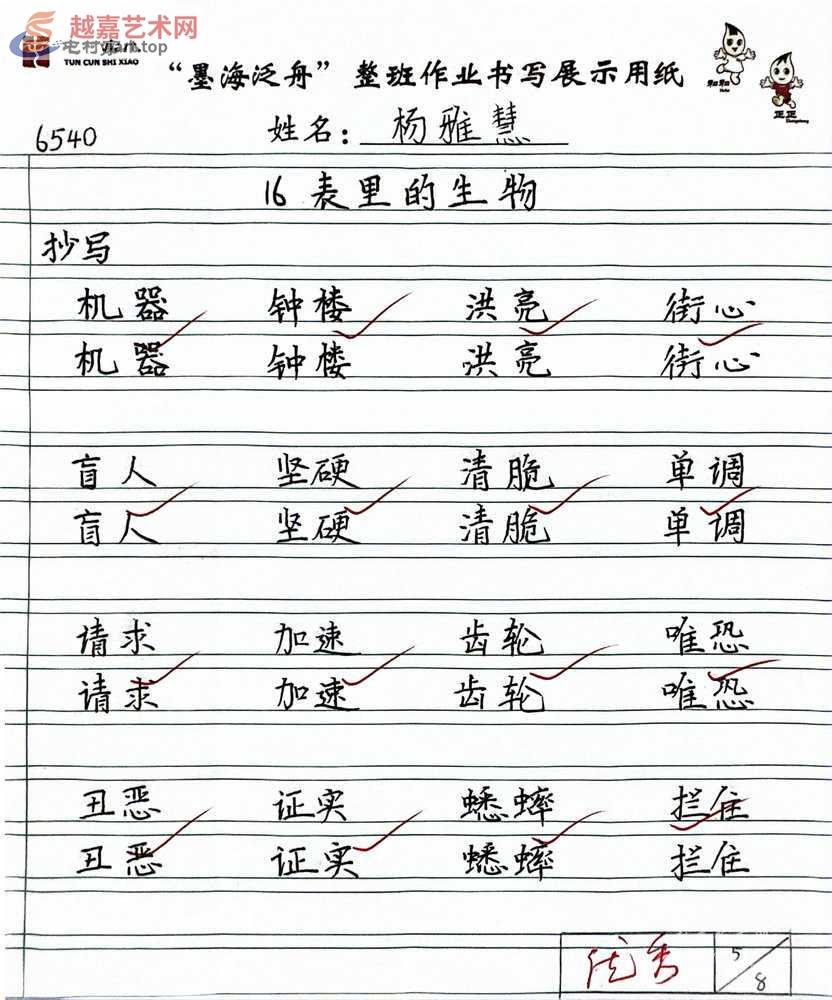 越嘉艺术网
TUN CUN SHI XIAO
“墨海泛舟”整班作业书写展示用纸
和和
正正
6540
姓名：杨雅慧
16 表里的生物
抄写
机器 钟楼 洪亮 街心
机器 钟楼 洪亮 街心
盲人 坚硬 清脆 单调
盲人 坚硬 清脆 单调
请求 加速 齿轮 唯恐
请求 加速 齿轮 唯恐
丑恶 证实 蟋蟀 拦住
丑恶 证实 蟋蟀 拦住
优秀 5/8